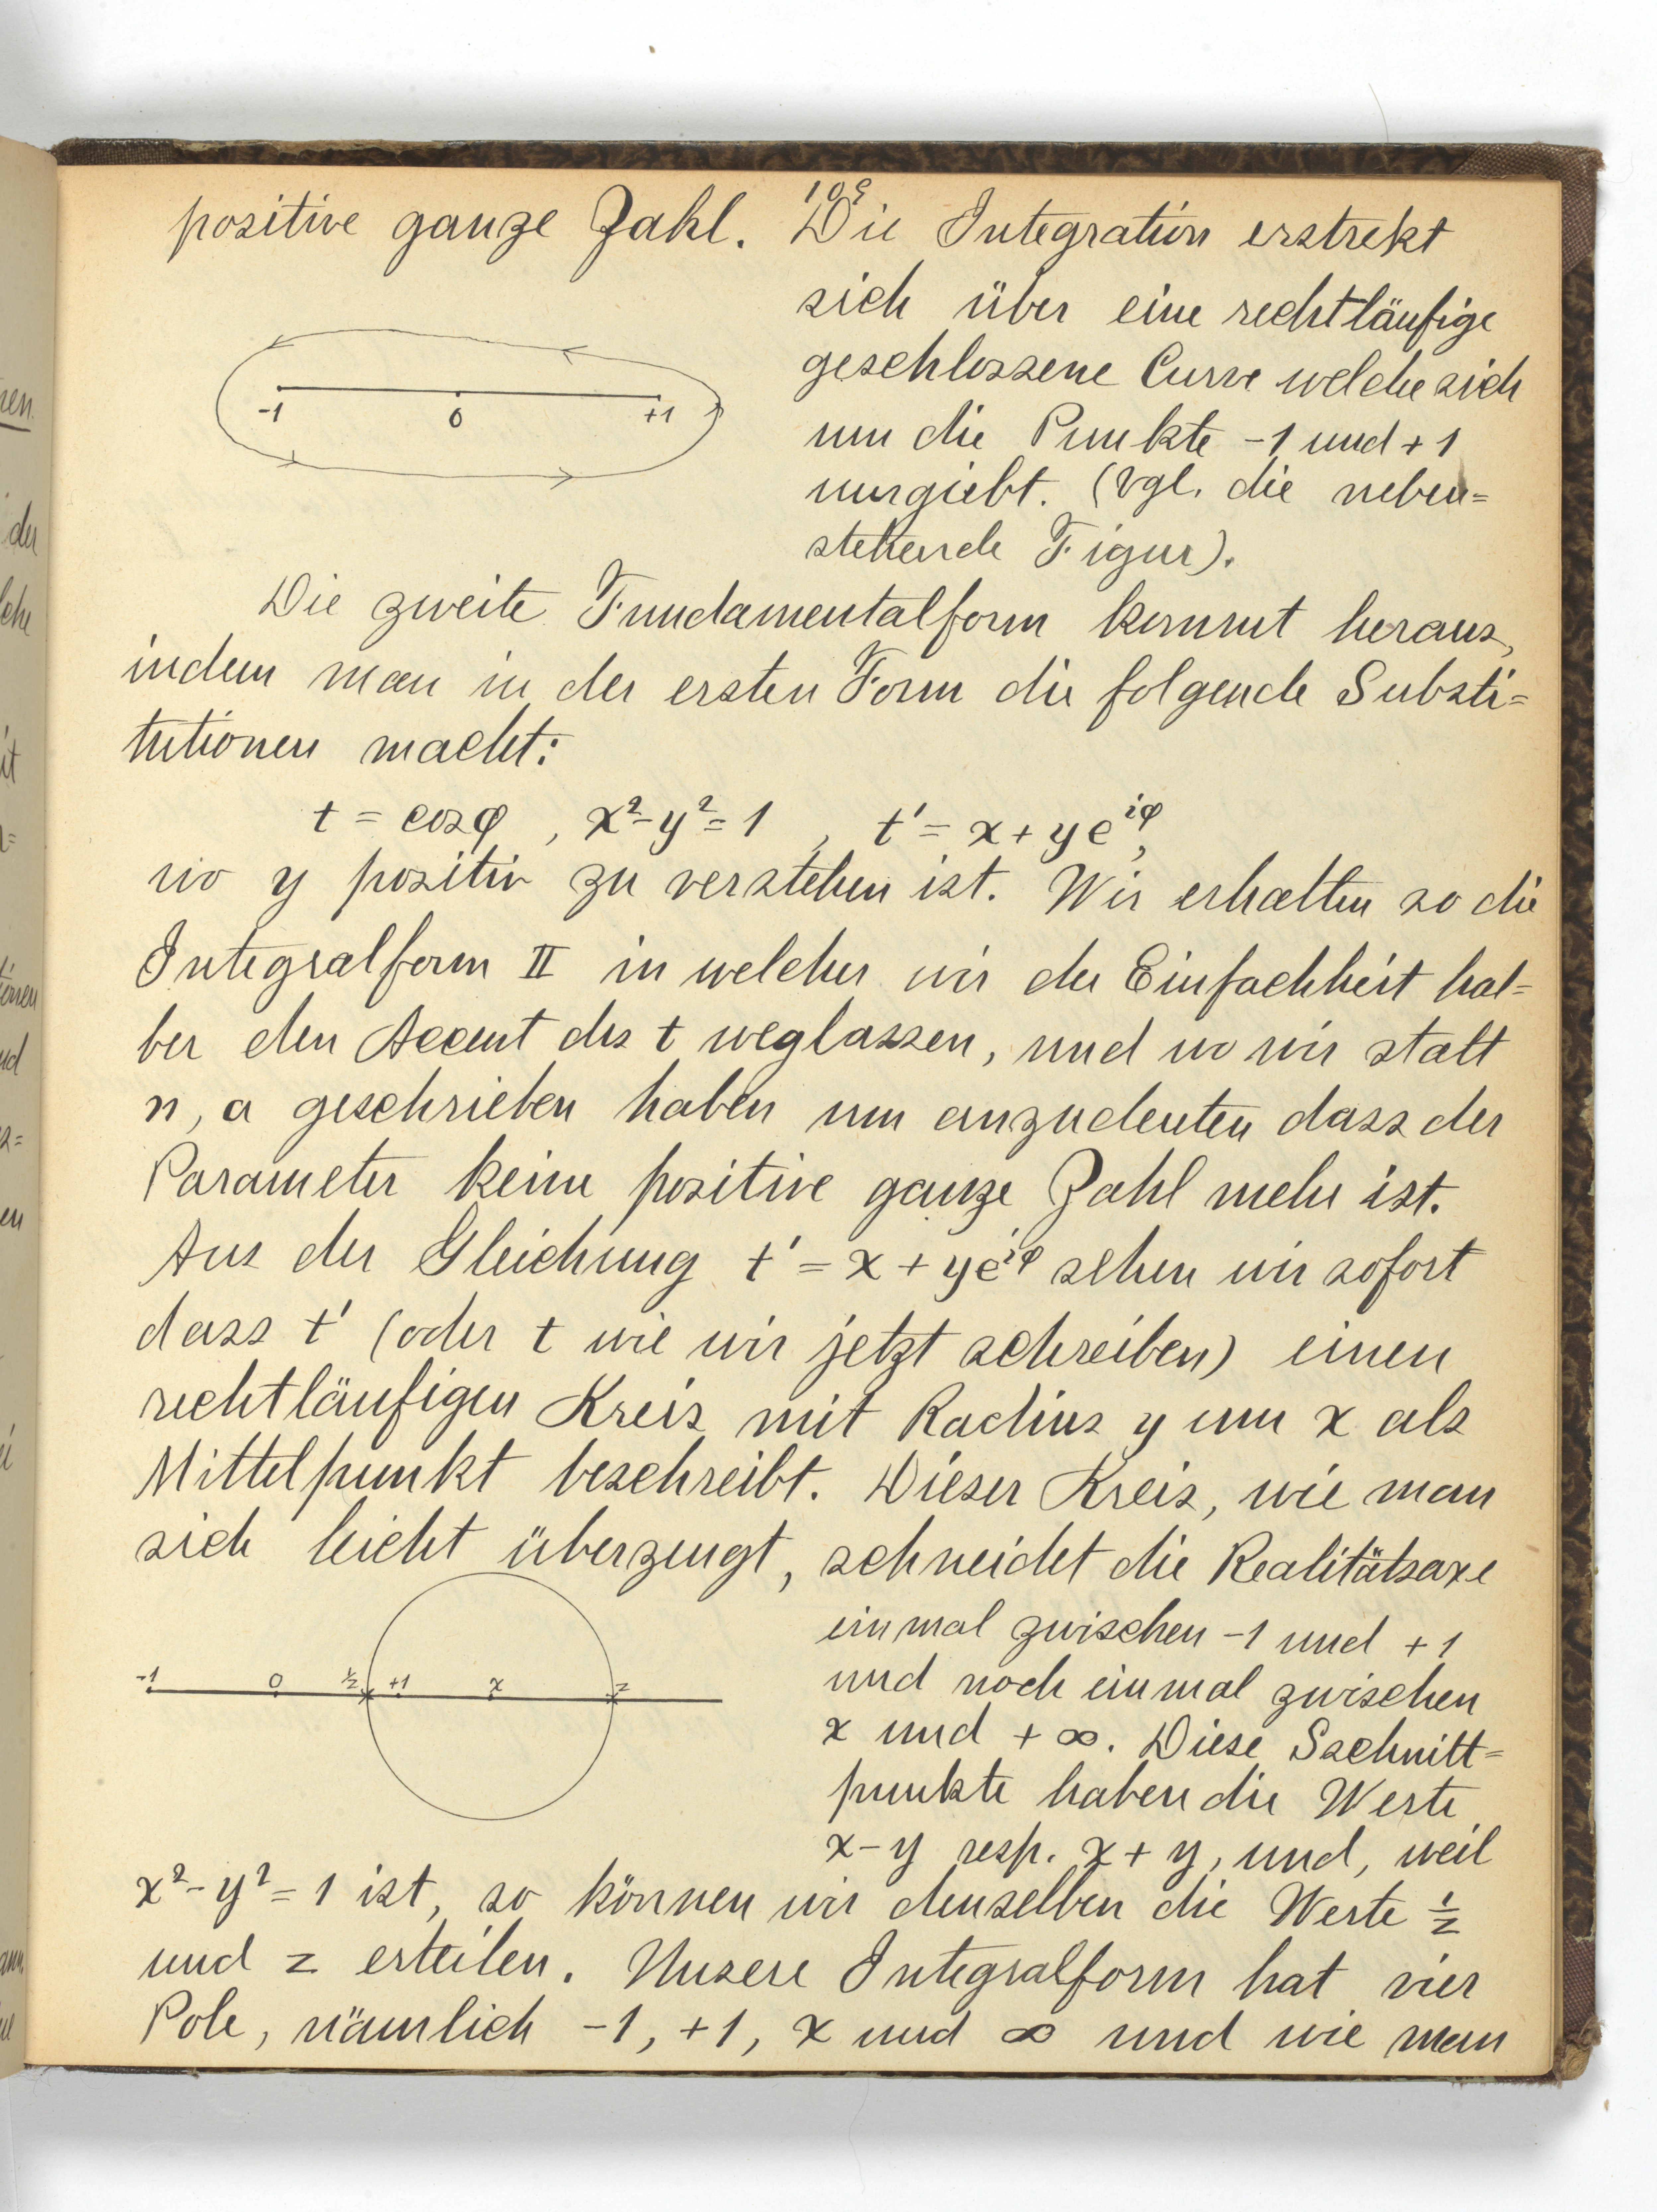 109
positive ganze Zahl. Die Integration erstrekt
sich über eine rechtläufige
geschlossene Curve welche sich
um die Punkte -1 und +1
umgiebt. (Vgl. die neben=
stehende Figur).
-1 0 +1
Die zweite Fundamentalform kommt heraus,
indem man in der ersten Form die folgende Substi=
tutionen macht:
t = cos φ , x² - y² = 1 , t' = x + y e^{iφ},
wo y positiv zu verstehen ist. Wir erhalten so die
Integralform II in welcher wir der Einfachheit hal=
ber den Accent des t weglassen, und wo wir statt
n, a geschrieben haben um anzudeuten dass der
Parameter keine positive ganze Zahl mehr ist.
Aus der Gleichung t' = x + y e^{iφ} sehen wir sofort
dass t' (oder t wie wir jetzt schreiben) einen
rechtläufigen Kreis mit Radius y um x als
Mittelpunkt beschreibt. Dieser Kreis, wie man
sich leicht überzeugt, schneidet die Realitätsaxe
einmal zwischen -1 und +1
und noch einmal zwischen
x und + ∞. Diese Sschnitt=
punkte haben die Werte
x - y resp. x + y, und, weil
-1 0 1/z +1 x z
x² - y² = 1 ist, so können wir denselben die Werte 1/z
und z erteilen. Unsere Integralform hat vier
Pole, nämlich -1, +1, x und ∞ und wie man